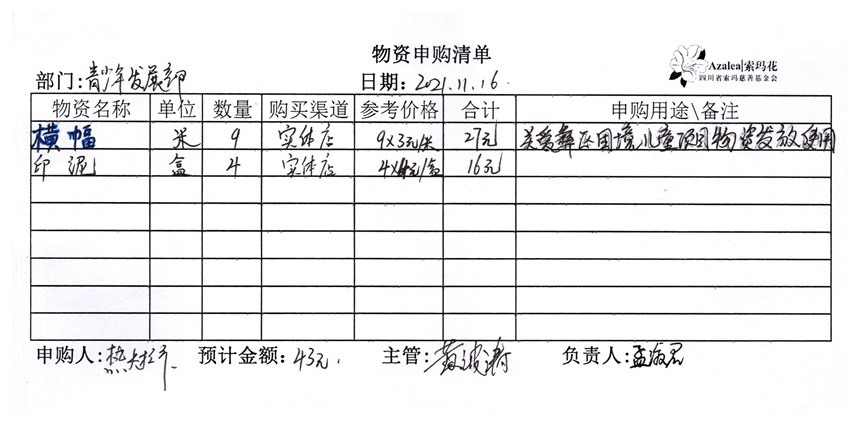 物资申购清单
Azalea|索玛花
四川省索玛慈善基金会
部门:青少年发展部 日期:2021.11.16.
物资名称 单位 数量 购买渠道 参考价格 合计 申购用途\备注
横幅 米 9 实体店 9×3元/米 27元 关爱彝区困境儿童项目物资发放使用
印泥 盒 4 实体店 4×4元/盒 16元
申购人: 预计金额:43元. 主管: 负责人: